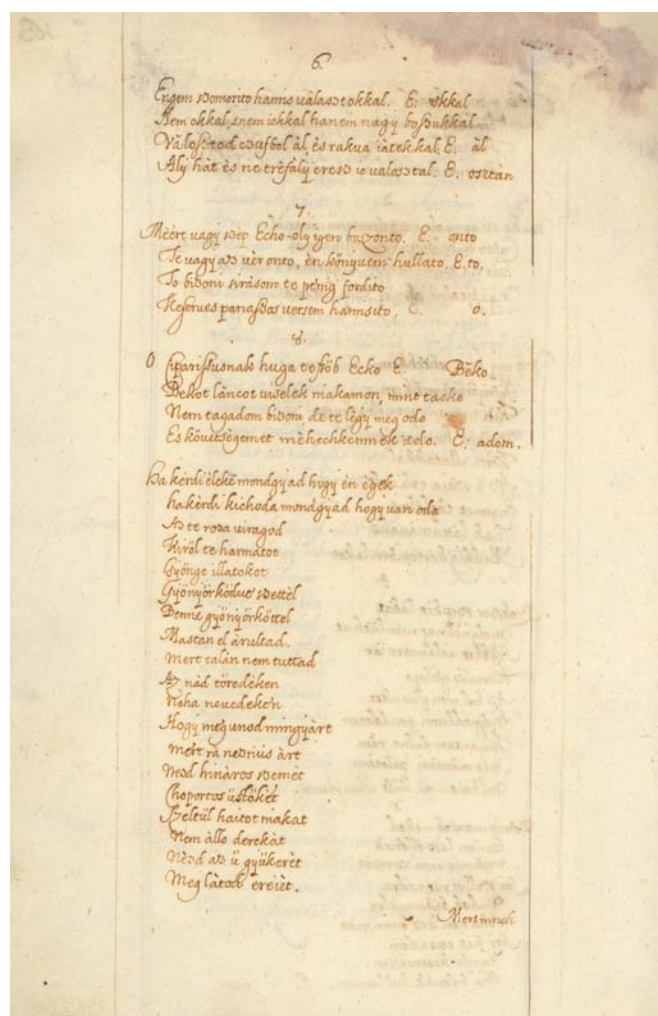 6.
Engem szomorito hamis uàlasztokkal. E: okkal
Nem okkal, snem iokkal hanem nagy boszukkal
es rakua iàtekkal, E. àl
Aly hàt ès ne trèfàly eresz io ualosztal. E. osztàn
7.
Mèèrt vagy szèp Echo oly igen bozonto. E: onto
Te vagy az vèr onto, èn könyuem hullato. E. to.
To bizony sirásom te penig fordito
Keserues panaszos uersem hamisito, E. o.
8.
O Ciparissusnak huga te szöb Ecko E. Bèko.
Bekot làncot uiselek niakamon, mint tacko
Nem tagadom bizony, de te lègy meg odo
Es követsègemet mèhechkèmnèk E: adom.
Ha kèrdi èlekè mondgyad hogy èn ègek
ha kèrdi kichoda mondgyad hogy uan oda
Az te roza uiragod
Kiröl te harmatot
Gyönge illatokot
Gyönyörködue szettèl
Benne gyönyörköttèl
Mastan el àrultad.
mert talàn nem tuttad
Az nàd töredèken
Neha neuedeken
Hogy meg unod mingyàrt
mert rà neuius àrt
Nèzd hinàros szemèt
Choportos üstökèt
Szeltül haitot niakat
Nem àllo derekàt
Nèzd az ü gyükerèt
Meg làtod ereièt.
Mert minek